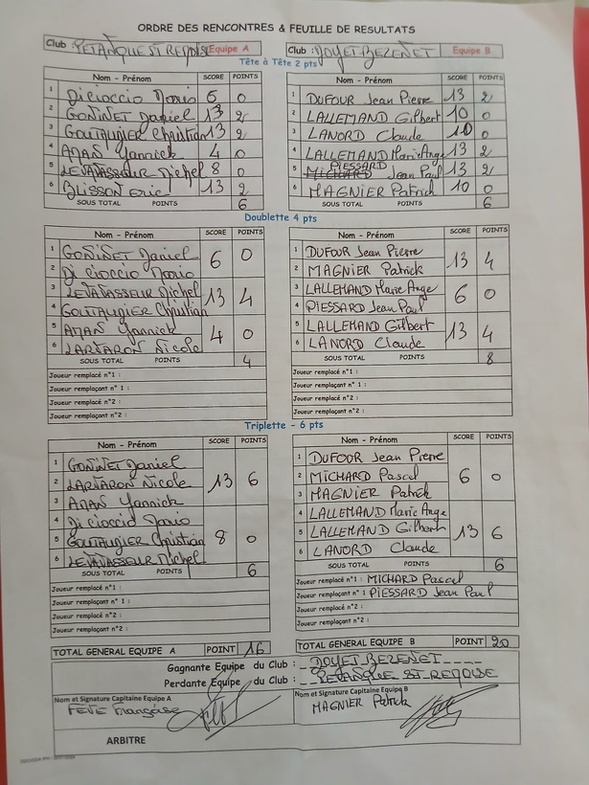 ORDRE DES RENCONTRES & FEUILLE DE RESULTATS
Club : PETANQUE ST REMOISE Equipe A
Club : DOYET BEZENET Equipe B
Tête à Tête 2 pts
Nom - Prénom SCORE POINTS
1 Di cioccio Mario 6 0
2 GONINET Daniel 13 2
3 GOUTAUGIER Christian 13 2
4 AMAN Yannick 4 0
5 LEVAVASSEUR Michel 8 0
6 BLISSON Eric 13 2
SOUS TOTAL POINTS 6
Nom - Prénom SCORE POINTS
1 DUFOUR Jean Pierre 13 2
2 LALLEMAND Gilbert 10 0
3 LANORD Claude 10 0
4 LALLEMAND Marie Ange 13 2
PIESSARD
5 MICHARD Jean Paul 13 2
6 MAGNIER Patrick 10 0
SOUS TOTAL POINTS 6
Doublette 4 pts
Nom - Prénom SCORE POINTS
1 GONINET Daniel 6 0
2 Di cioccio Mario
3 LEVAVASSEUR Michel 13 4
4 GOUTAUGIER Christian
5 AMAN Yannick 4 0
6 LARTARON Nicole
SOUS TOTAL POINTS 4
Joueur remplacé n°1 :
Joueur remplaçant n° 1 :
Joueur remplacé n°2 :
Joueur remplaçant n°2 :
Nom - Prénom SCORE POINTS
1 DUFOUR Jean Pierre 13 4
2 MAGNIER Patrick
3 LALLEMAND Marie Ange 6 0
4 PIESSARD Jean Paul
5 LALLEMAND Gilbert 13 4
6 LANORD Claude
SOUS TOTAL POINTS 8
Joueur remplacé n°1 :
Joueur remplaçant n° 1 :
Joueur remplacé n°2 :
Joueur remplaçant n°2 :
Triplette - 6 pts
Nom - Prénom SCORE POINTS
1 GONINET Daniel 13 6
2 LARTARON Nicole
3 AMAN Yannick
4 Di cioccio Mario 8 0
5 GOUTAUGIER Christian
6 LEVAVASSEUR Michel
SOUS TOTAL POINTS 6
Joueur remplacé n°1 :
Joueur remplaçant n° 1 :
Joueur remplacé n°2 :
Joueur remplaçant n°2 :
Nom - Prénom SCORE POINTS
1 DUFOUR Jean Pierre 6 0
2 MICHARD Pascal
3 MAGNIER Patrick
4 LALLEMAND Marie Ange 13 6
5 LALLEMAND Gilbert
6 LANORD Claude
SOUS TOTAL POINTS 6
Joueur remplacé n°1 : MICHARD Pascal
Joueur remplaçant n° 1 : PIESSARD Jean Paul
Joueur remplacé n°2 :
Joueur remplaçant n°2 :
TOTAL GENERAL EQUIPE A POINT 16
TOTAL GENERAL EQUIPE B POINT 20
Gagnante Equipe du Club : DOYET BEZENET
Perdante Equipe du Club : PETANQUE ST REMOISE
Nom et Signature Capitaine Equipe A
FEVE Françoise
Nom et Signature Capitaine Equipe B
MAGNIER Patrick
ARBITRE